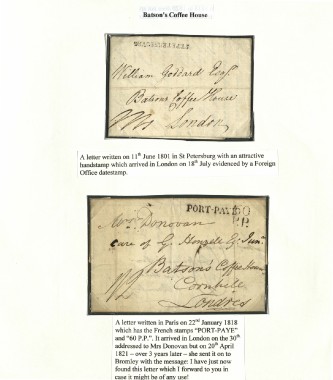 Batson's Coffee House
William Goddard Esqr.
Batsons Coffee House
London
A letter written on 11th June 1801 in St Petersburg with an attractive
handstamp which arrived in London on 18th July evidenced by a Foreign
Office datestamp.
PORT-PAYE 60
P.P.
Mrs. Donovan
care of G
Batson's Coffee House
Cornhill
Londres
A letter written in Paris on 22nd January 1818
which has the French stamps “PORT-PAYE”
and “60 P.P.”. It arrived in London on the 30th
addressed to Mrs Donovan but on 20th April
1821 – over 3 years later – she sent it on to
Bromley with the message: I have just now
found this letter which I forward to you in
case it might be of any use!